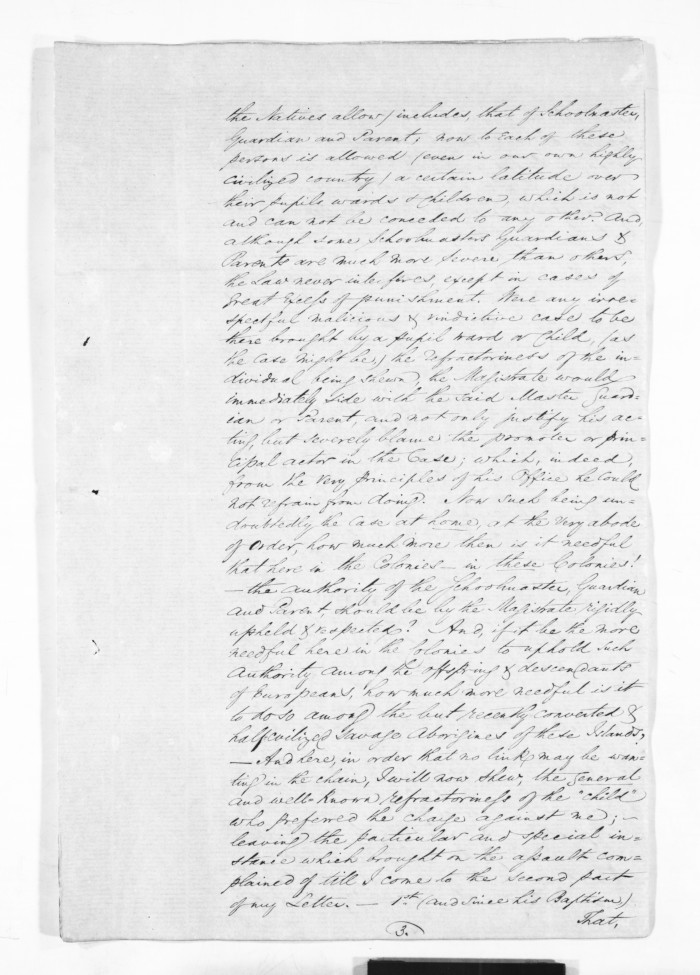 the Natives allow) includes, that of Schoolmaster,
Guardian and Parent; now to Each of these
persons is allowed (even in our own highly
civilized country) a certain latitude over
their pupils wards & children, which is not
and can not be conceded to any other. And,
although some Schoolmasters Guardians &
Parents are much more severe than others,
the Law never interferes, except in cases of
Great Excess of punishment. Were any irre=
spectful malicious & vindictive case to be
there brought by a pupil ward or Child, (as
the case might be,) the refractoriness of the in=
dividual being shewn, the Magistrate would
immediately side with the said Master Guard=
ian or Parent, and not only justify his ac=
ting, but severely blame the promoter or prin=
cipal actor in the Case; which, indeed,
from the very principles of his Office he could
not refrain from doing. Now such being un=
doubtedly the case at home, at the very abode
of order, how much more then is it needful
that here in the Colonies — in these Colonies!
— the authority of the Schoolmaster, Guardian
and Parent, should be by the Magistrate rigidly
upheld & respected? And, if it be the more
needful here in the Colonies to uphold such
Authority among the offspring & descendants
of Europeans, how much more needful is it
to do so among the but recently converted &
half civilized Savage Aborigines of these Islands?
— And here, in order that no link may be wan=
ting in the chain, I will now shew, the general
and well-known refractoriness of the "child"
who preferred the charge against me; —
leaving the particular and special in=
stance which brought on the assault com=
plained of till I come to the second part
of my Letter. — 1st. (and since his Baptism)
That,
3.